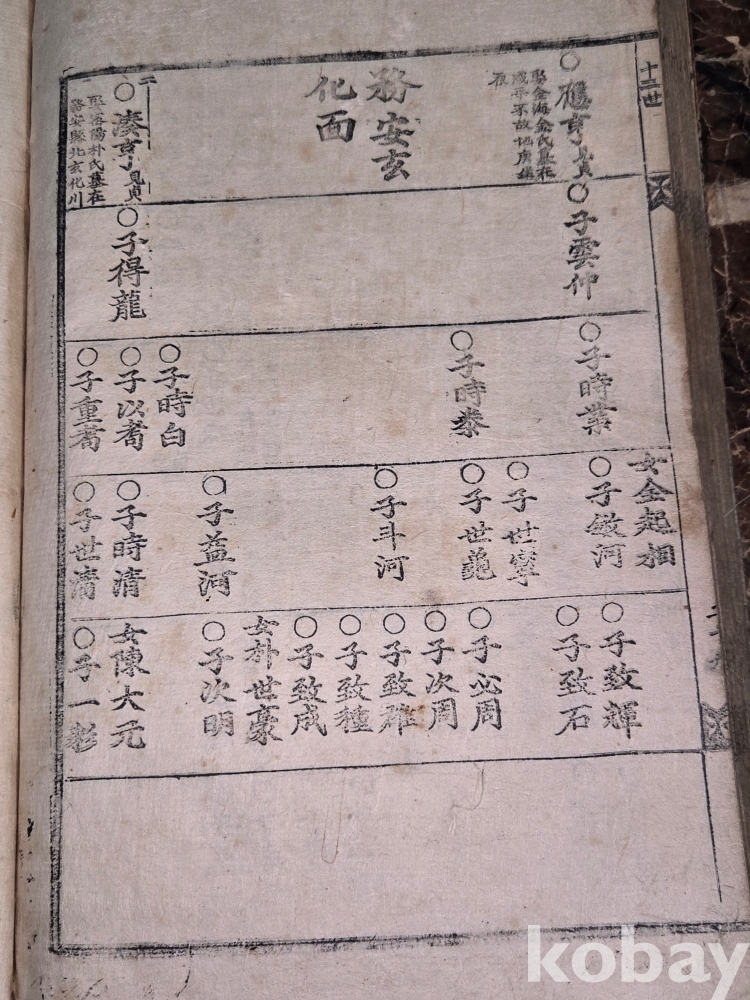 十二世
○應亨 貞
娶金海金氏墓在
咸平不故地庚坐
務安玄
化面
二
○湊亨
娶洛陽朴氏墓在
務安縣北玄化川
○子雲仲
○子得龍
○子時業
○子時泰
○子時白
○子以耉
○子重耉
女金起相
○子繳河
○子世寧
○子世
○子斗河
○子益河
○子時清
○子世
○子致輝
○子致石
○子必周
○子次周
○子致雄
○子致種
○子致成
女朴世豪
○子次明
女陳大元
○子一彩
kobay